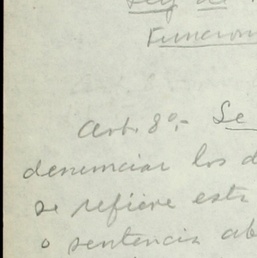 Ley de
Funcion
Art. 8º.- Se
denunciar los d
se refiere esta
o sentencia ab